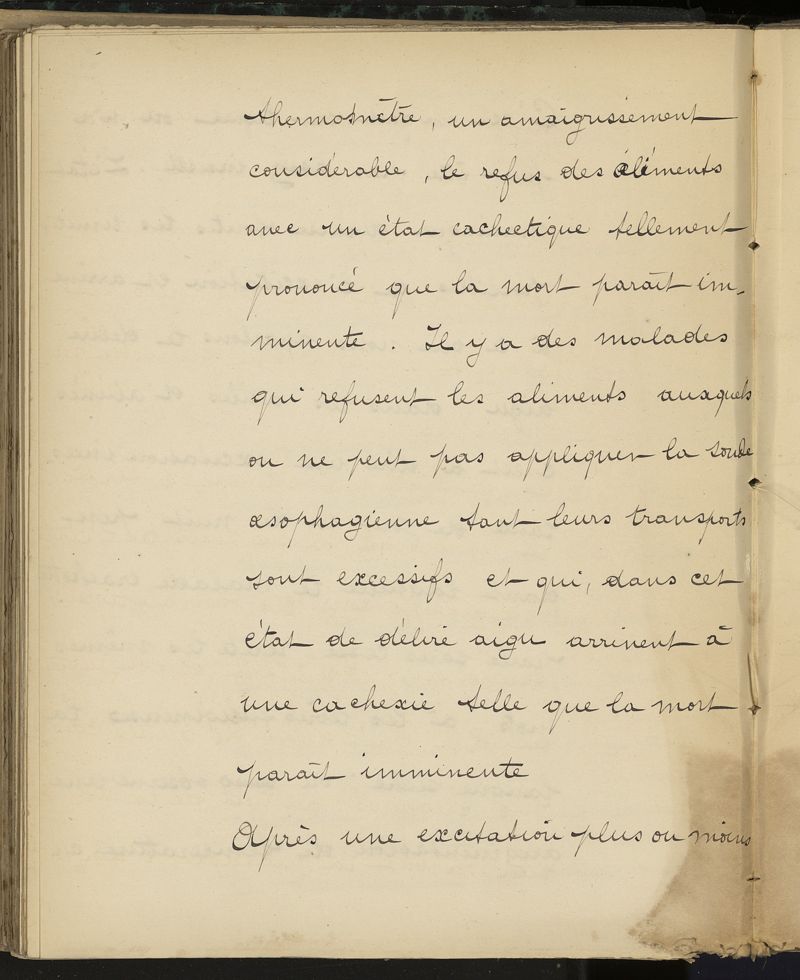 thermomètre, un amaigrissement
considérable, le refus des aliéments
avec un état cachectique tellement
prononcé que la mort paraît im-
minente. Il y a des malades
qui refusent les aliments auxquels
on ne peut pas appliquer la sonde
œsophagienne tant leurs transports
sont excessifs et qui, dans cet
état de délire aigu arrivent à
une cachexie telle que la mort
paraît imminente
Après une excitation plus ou moins